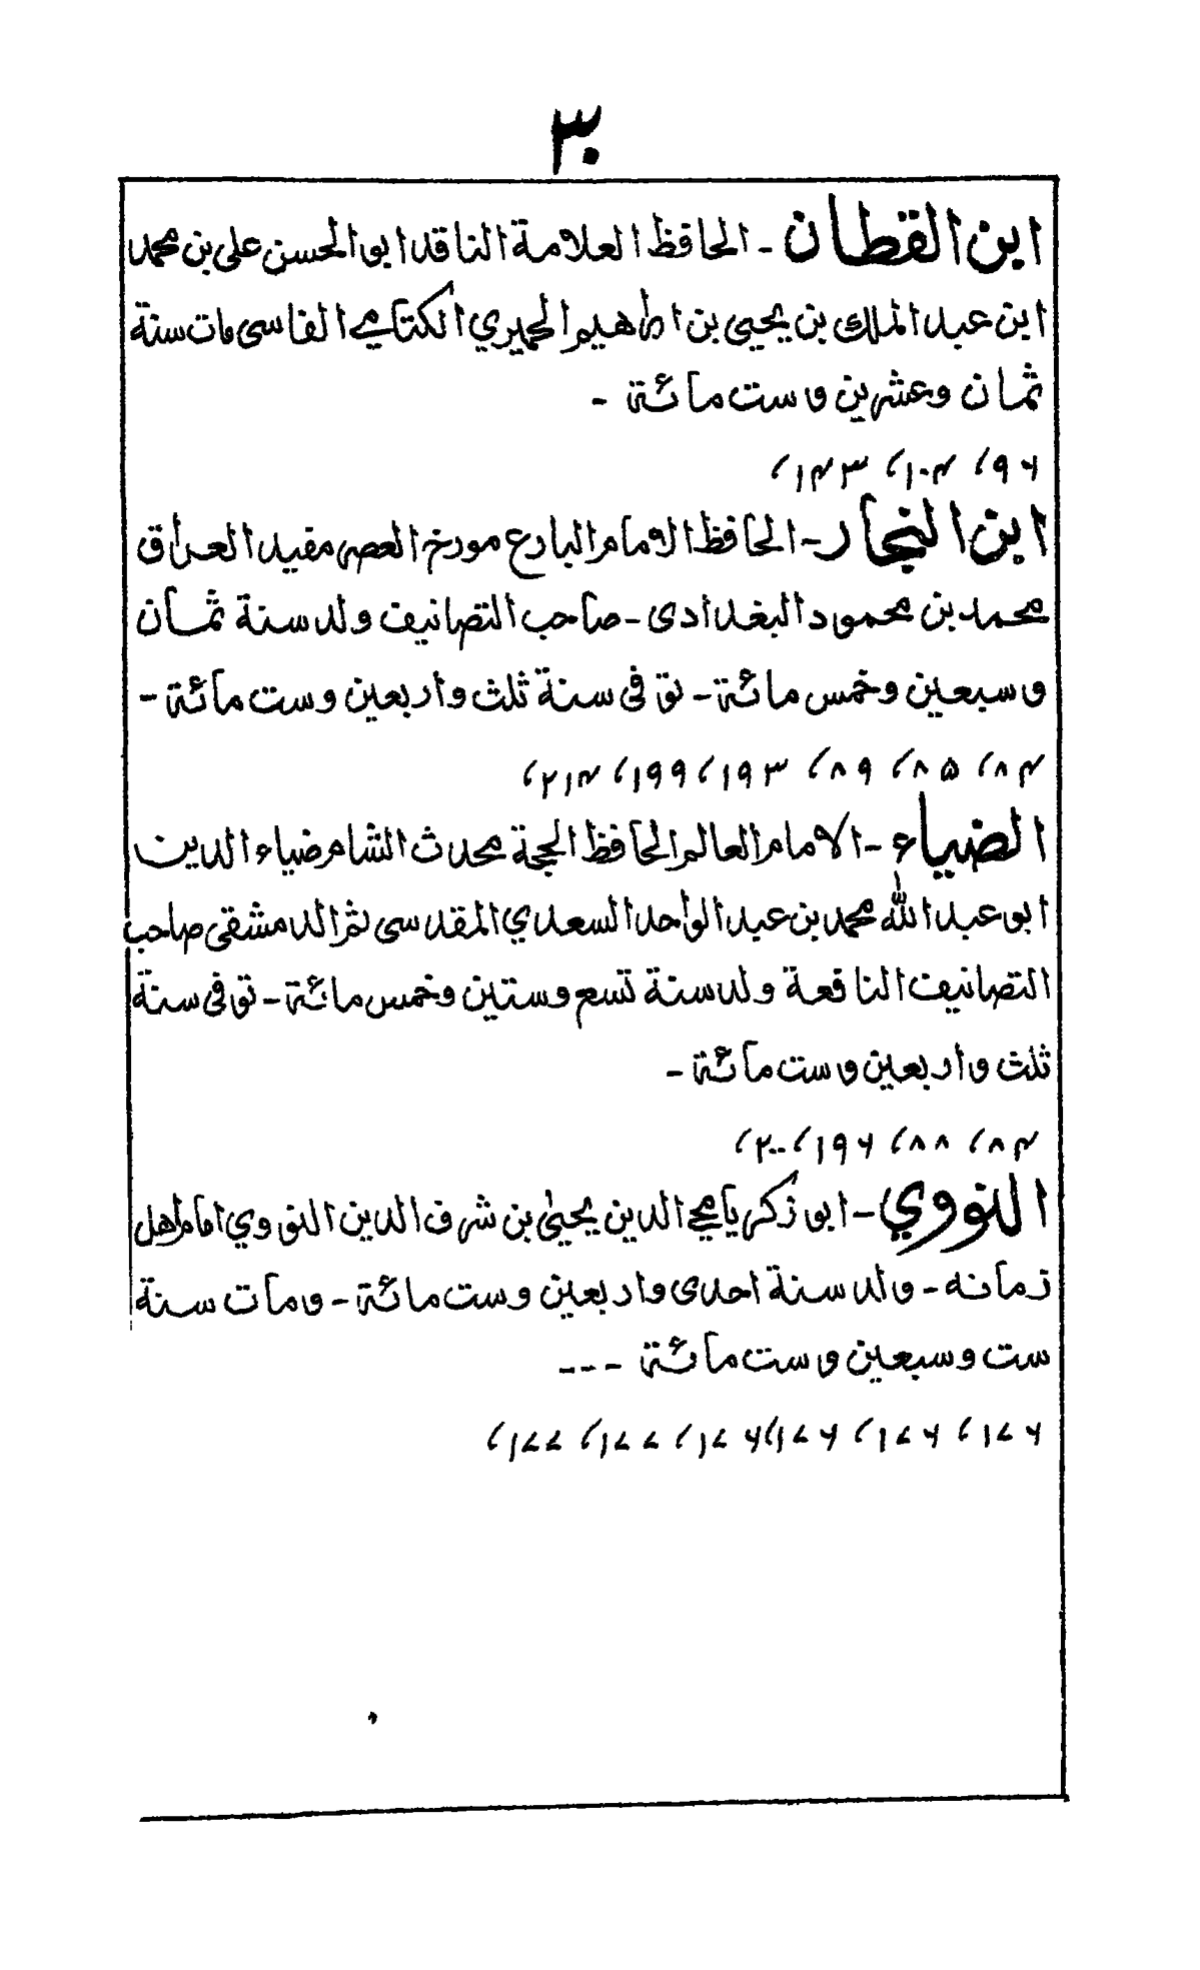 ٣٠
ابن القطان - الحافظ العلامة الناقد ابو الحسن على بن محمد
ابن عبد الملك بن يحيى بن ابراهيم الحميري الكتامي الفاسى مات سنة
ثمان وعشرين وست مائة -
٩٦، ١٠٤، ١٤٣،
ابن النجار - الحافظ الامام البارع مورخ العصر مفيد العراق
محمد بن محمود البغدادى - صاحب التصانيف ولد سنة ثمان
وسبعين وخمس مائة - توفى سنة ثلث واربعين وست مائة -
٨٤، ٨٥، ٨٩، ١٩٣، ١٩٩، ٢١٤،
الضياء - الامام العالم الحافظ الحجة محدث الشام ضياء الدين
ابو عبد الله محمد بن عبد الواحد السعدي المقدسى ثم الدمشقى صاحب
التصانيف النافعة ولد سنة تسع وستين وخمس مائة - توفى سنة
ثلث واربعين وست مائة -
٨٤، ٨٨، ١٩٦، ٢٠٠،
النووي - ابو زكريا محي الدين يحيىٰ بن شرف الدين النووي امام اهل
زمانه - ولد سنة احدى واربعين وست مائة - ومات سنة
ست وسبعين وست مائة ---
١٧٦، ١٧٦، ١٧٦، ١٧٦، ١٧٧، ١٧٧،